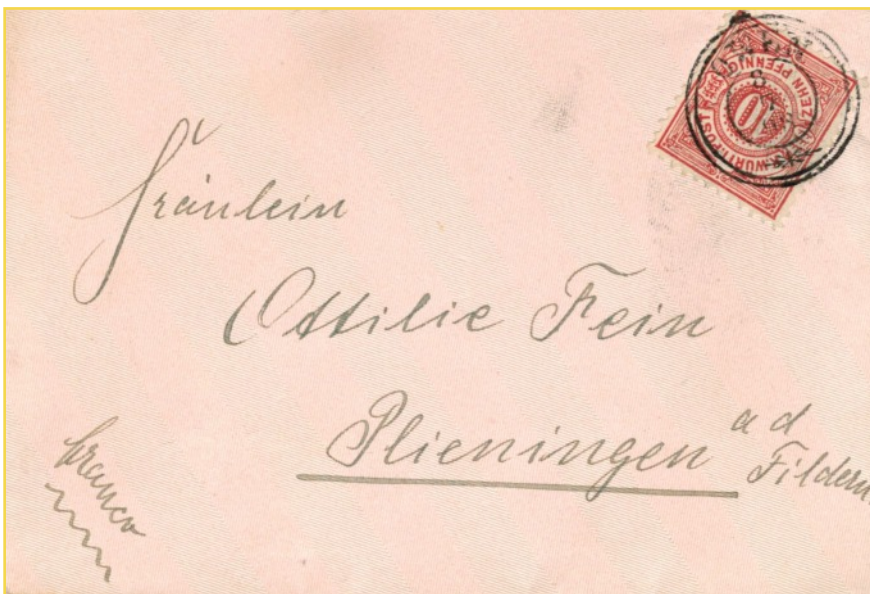 ZEHN PFENNIG
K. WÜRTT. POST
10
8
Fräulein
Ottilie Fein
Plieningen a d
Fildern
franco